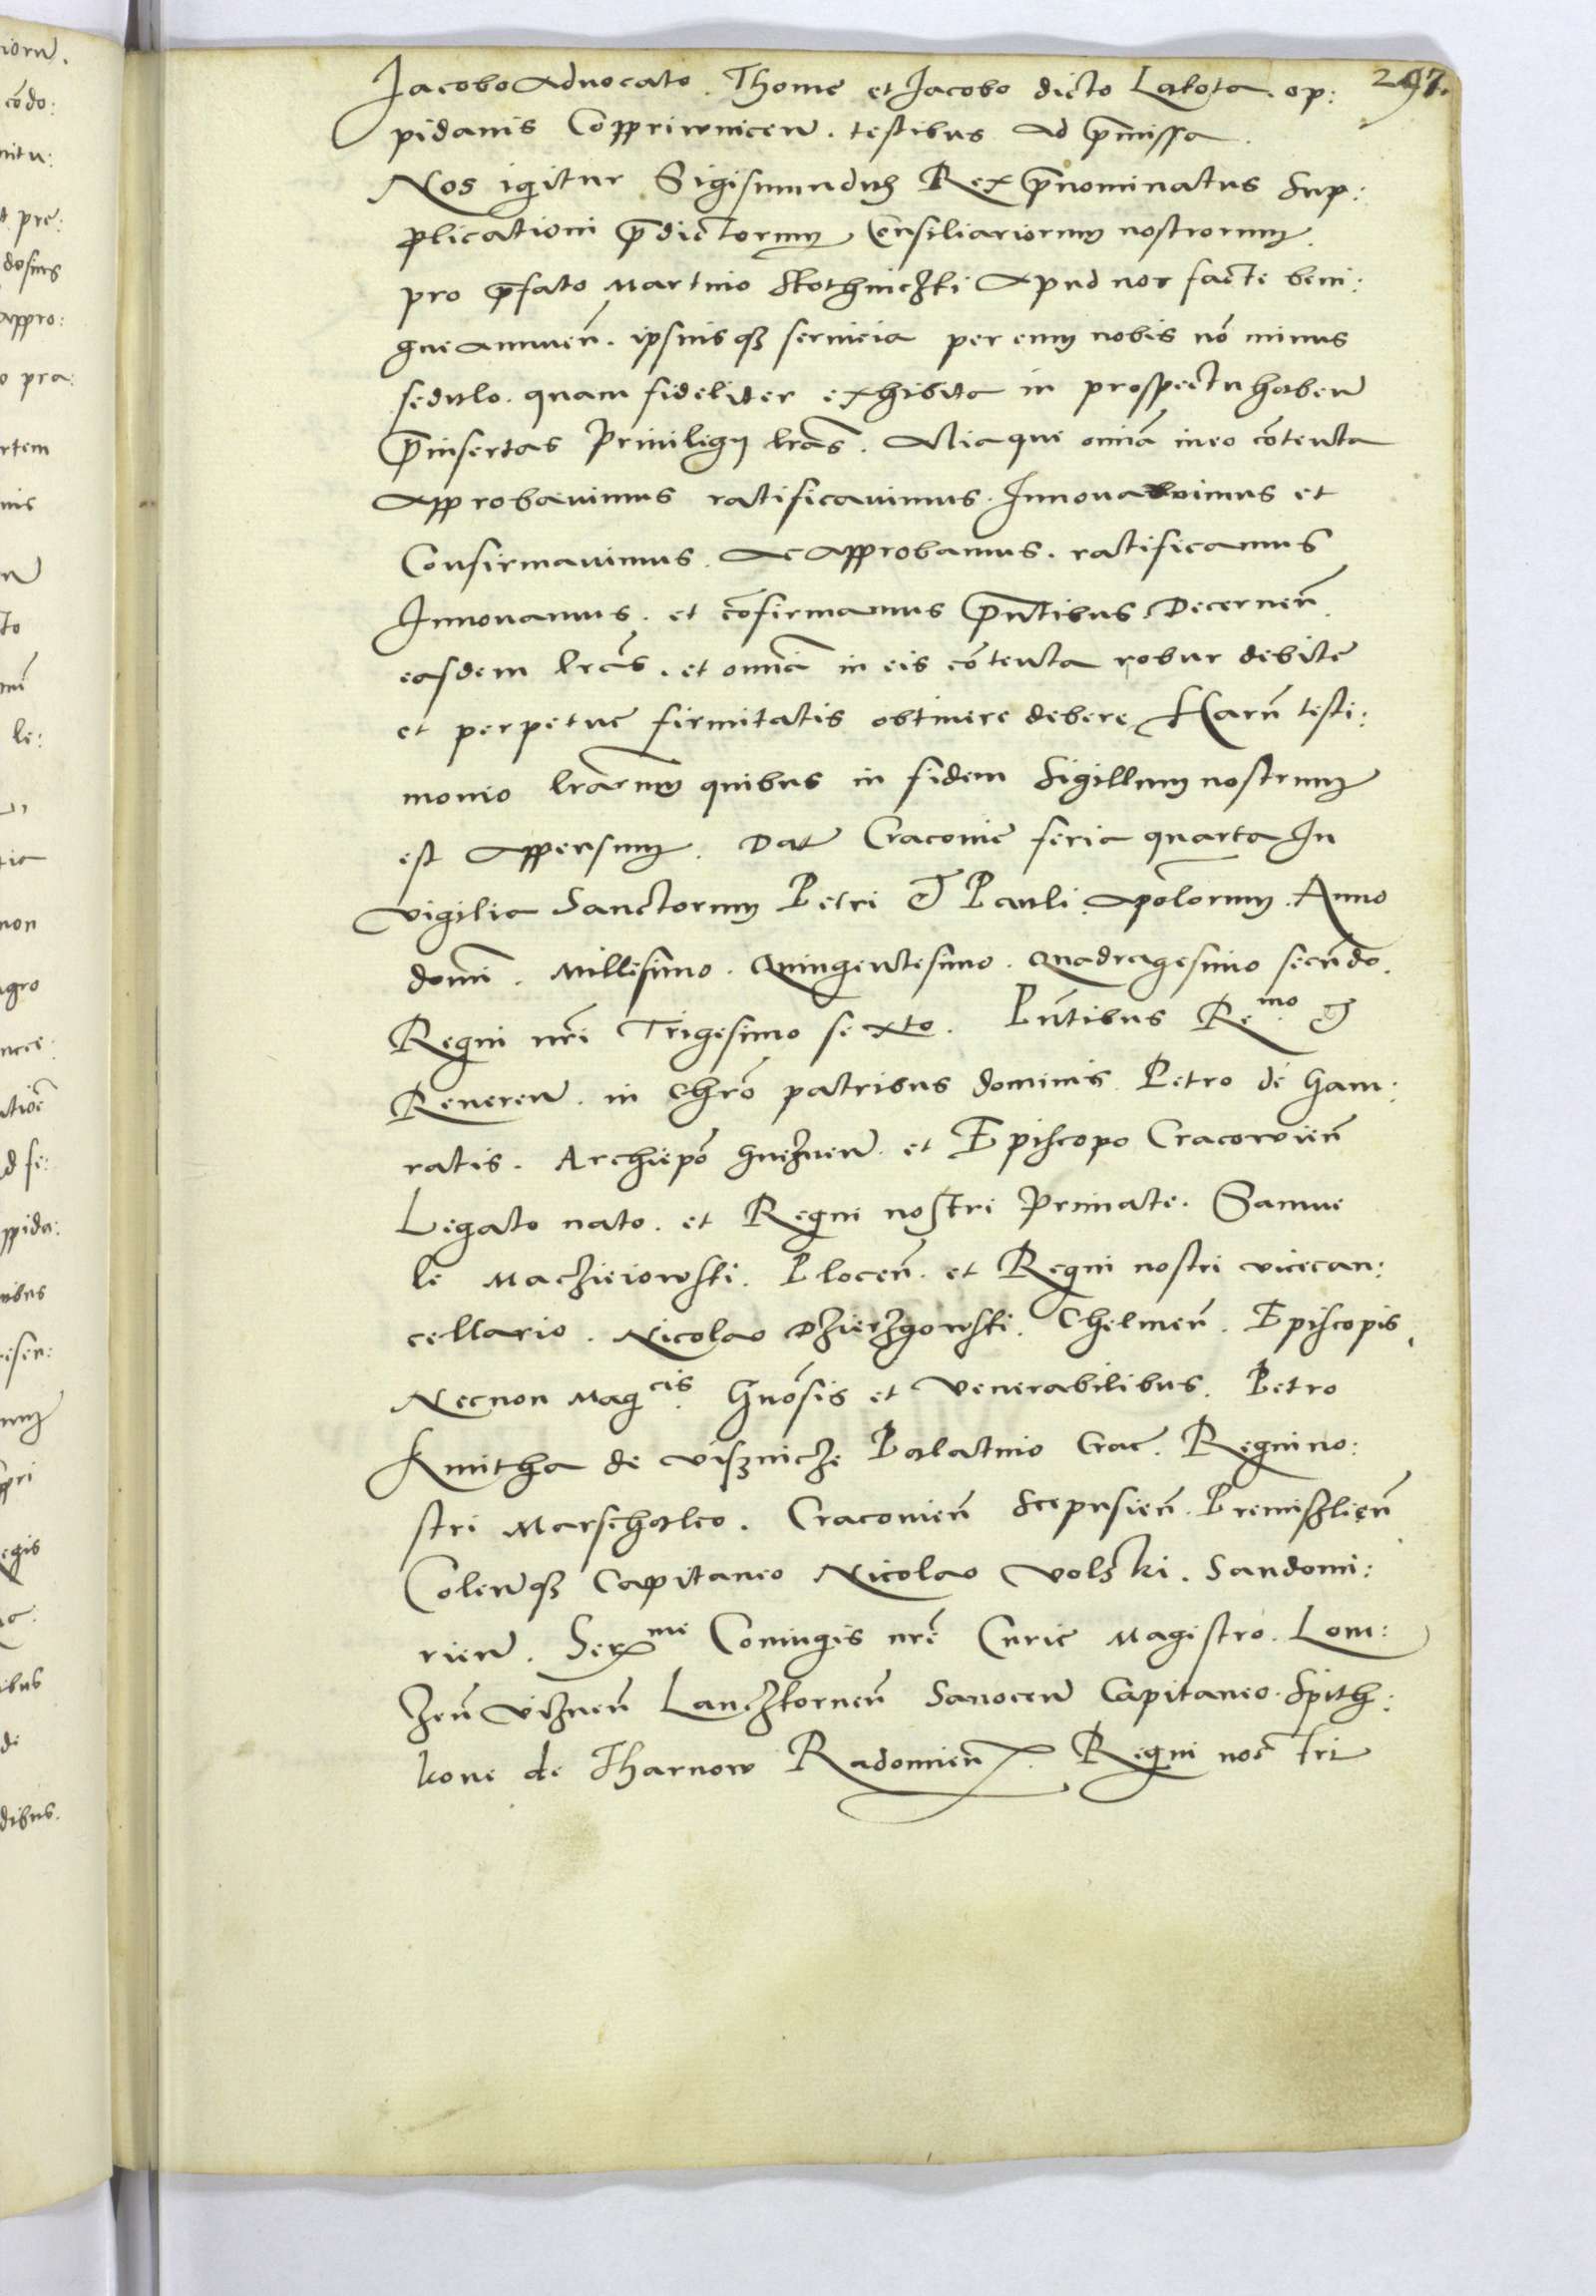 297.
Jacobo Advocato. Thome et Jacobo dicto Lalota. op:
pidanis Coppriwnicen̄. testibus ad p̄missa.
Nos igitur Sigismundus Rex p̄nominatus sup:
plicationi p̄dictorum Consiliariorum nostrorum
pro p̄fato Martino Slothniczki apud nos facte beni:
gne annuen̄. ipsiusq; servicia per eum nobis nō minus
sedulo. quam fideliter exhibita in prospectu haben̄
p̄insertas Privilegij lr̄as. Aliaque omnia in eo cōtenta
approbavimus ratificavimus. Innovavimus et
Confirmavimus. ac approbamus. ratificamus
Innovamus. et cōfirmamus p̄ntibus Decernen̄.
easdem lr̄as. et omnia in eis cōtenta robur debite
et perpetue firmitatis obtinere debere Harū testi:
monio lr̄arum quibus in fidem Sigillum nostrum
est appensum. Dat Cracovie feria quarta In
vigilia Sanctorum Petri & Pauli apōlorum. Anno
domī. Millesimo. Quingentesimo. Quadragesimo secundo.
Regni nr̄i Trigesimo sexto. Pn̄tibus Re.mo &
Reveren̄. in Chrō patribus dominis Petro de Gam:
ratis. Archiepō Gneznen̄. et Episcopo Cracovien̄
Legato nato. et Regni nostri Primate. Samue
le Maczieiowski. Plocen̄. et Regni nostri vicecan:
cellario. Nicolao Dzierzgowski. Chelmen̄. Episcopis,
Necnon Mag.cis Gnōsis et Venerabilibus. Petro
Kmitha de Visznicze Palatino Crac. Regni no:
stri Marschalco. Cracovien̄ Scepusien̄. Premislien̄
Colen̄q; Capitaneo Nicolao Volski. Sandomi:
rien̄. Ser.me Coniugis nr̄e Curie Magistro. Lom:
zen̄ Viznen̄ Lanczkornen̄ Sanocen̄ Capitaneo. Spith:
kone de Tharnow Radomien̄. Regni nostri